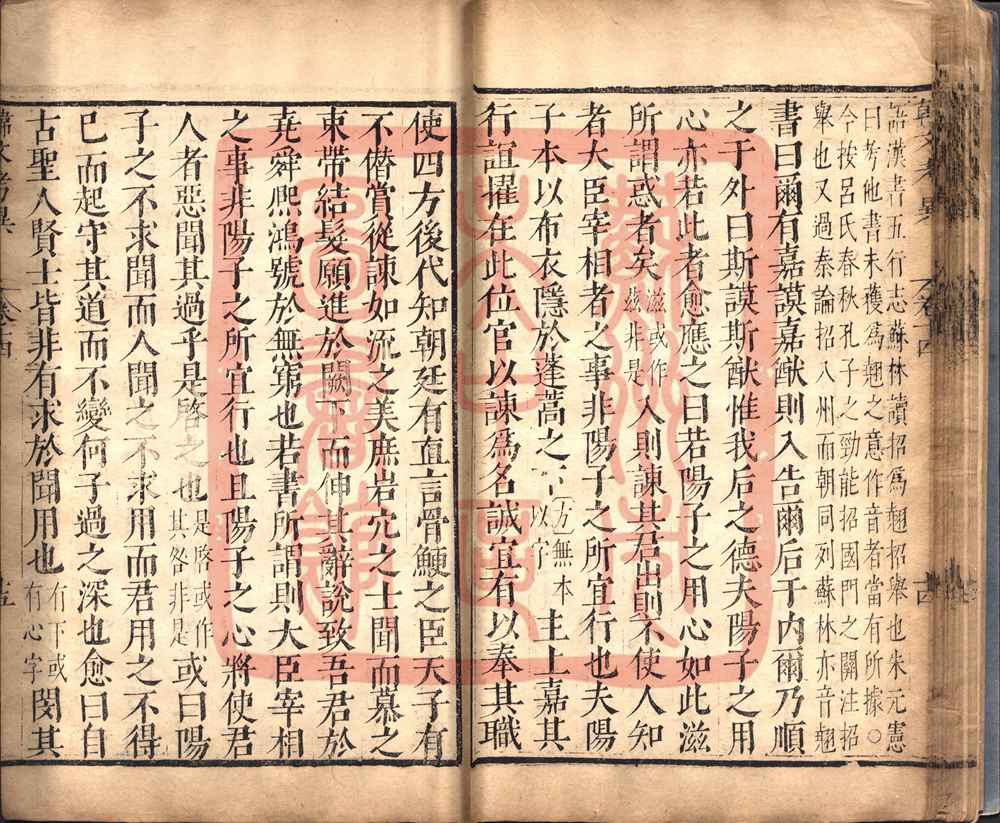 語漢書五行志蘇林讀招爲翹招舉也朱元憲
曰考他書未獲爲翹之意作音者當有所據○
今按呂氏春秋孔子之勁能招國門之關注招
舉也又過秦論招八州而朝同列蘇林亦音翹
書曰爾有嘉謨嘉猷則入告爾后于內爾乃順
之于外曰斯謨斯猷惟我后之德夫陽子之用
心亦若此者愈應之曰若陽子之用心如此滋
所謂惑者矣滋或作茲非是入則諫其君出則不使人知
者大臣宰相者之事非陽子之所宜行也夫陽
子本以布衣隱於蓬蒿之下方無本以字主上嘉其
行誼擢在此位官以諫爲名誠宜有以奉其職
使四方後代知朝廷有直言骨鯁之臣天子有
不僭賞從諫如流之美庶岩穴之士聞而慕之
束帶結髮願進於闕下而伸其辭說致吾君於
堯舜熙鴻號於無窮也若書所謂則大臣宰相
之事非陽子之所宜行也且陽子之心將使君
人者惡聞其過乎是啓之也是啓或作其咎非是或曰陽
子之不求聞而人聞之不求用而君用之不得
已而起守其道而不變何子過之深也愈曰自
古聖人賢士皆非有求於聞用也有下或有心字閔其
韓文考異 卷十四 十五